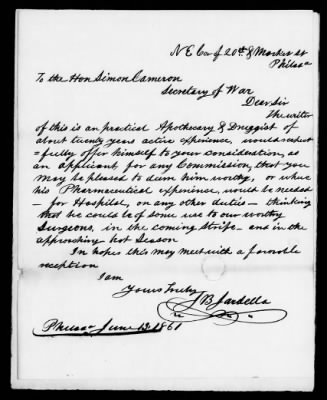 N E Cor of 20th & Market st
Philada
To the Hon Simon Cameron
Secretary of War
Dear Sir
The writer
of this is an practical Apothecary & Druggist of
about twenty years active experience, would respect
=fully offer himself to your consideration, as
an applicant for any Commission, that you
may be pleased to deem him worthy, or where
his Pharmaceutical experience, would be needed
- for Hospital, or any other duties - thinking
that he could be of some use to our worthy
Surgeons, in the coming strife - and in the
approaching hot Season
In hopes this may meet with a favorable
reception
I am
Yours truly
J B Sardella
Philada June 13. 1861